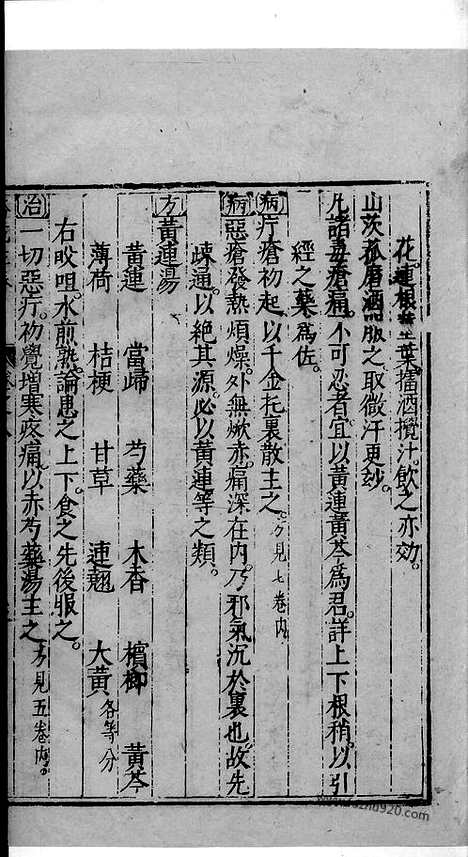 花連根莖葉擂酒攪汁飲之亦効。
山茨菰磨酒服之取微汗更妙。
凡諸毒瘡痛不可忍者宜以黃連黃芩爲君詳上下根稍以引
經之藥爲佐。
病疔瘡初起以千金托裏散主之。方見七卷内
病惡瘡發熱煩燥。外無焮赤痛深在内。乃邪氣沉於裏也。故先
疎通。以絕其源。必以黃連等之類。
方黃連湯
黃連 當歸 芍藥 木香 檳榔 黃芩
薄荷 桔梗 甘草 連翹 大黃各等分
右㕮咀。水煎熟論患之上下。食之先後服之。
治一切惡疔。初覺增寒疼痛。以赤芍藥湯主之方見五卷内。